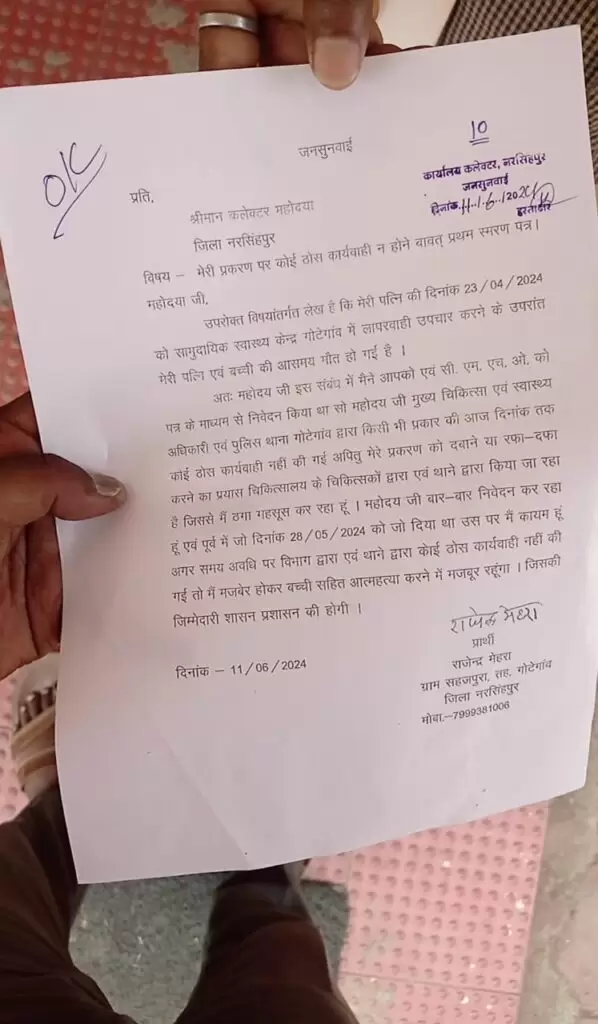 O/C
10
जनसुनवाई
कार्यालय कलेक्टर, नरसिंहपुर
जनसुनवाई
दिनांक.11.1.6.1202
हस्ताक्षर
प्रति,
श्रीमान कलेक्टर महोदया
जिला नरसिंहपुर
विषय – मेरी प्रकरण पर कोई ठोस कार्यवाही न होने बावत् प्रथम स्मरण पत्र।
महोदया जी,
उपरोक्त विषयांतर्गत लेख है कि मेरी पत्नि की दिनांक 23/04/2024
को सामुदायिक स्वास्थ्य केन्द्र गोटेगांव में लापरवाही उपचार करने के उपरांत
मेरी पत्नि एवं बच्ची की आसमय मौत हो गई है ।
अतः महोदय जी इस संबंध में मैने आपको एवं सी. एम. एच. ओ. को
पत्र के माध्यम से निवेदन किया था सो महोदय जी मुख्य चिकित्सा एवं स्वास्थ्य
अधिकारी एवं पुलिस थाना गोटेगांव द्वारा किसी भी प्रकार की आज दिनांक तक
कोई ठोस कार्यवाही नहीं की गई अपितु मेरे प्रकरण को दबाने या रफा–दफा
करने का प्रयास चिकित्सालय के चिकित्सकों द्वारा एवं थाने द्वारा किया जा रहा
है जिससे मैं ठगा गहसूस कर रहा हूं । महोदय जी बार–बार निवेदन कर रहा
हूं एवं पूर्व में जो दिनांक 28/05/2024 को जो दिया था उस पर मैं कायम हूं
अगर समय अवधि पर विभाग द्वारा एवं थाने द्वारा केाई ठोस कार्यवाही नहीं की
गई तो मैं मजबेर होकर बच्ची सहित आत्महत्या करने में मजबूर रहूंगा । जिसकी
जिम्मेदारी शासन प्रशासन की होगी ।
राजेन्द्र मेहरा
प्रार्थी
दिनांक – 11/06/2024
राजेन्द्र मेहरा
ग्राम सहजपुरा, तह. गोटेगांव
जिला नरसिंहपुर
मोबा.–7999381006